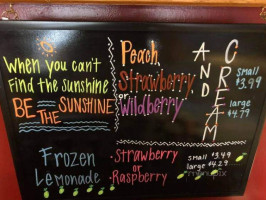 When you can't
find the sunshine
BE THE SUNSHINE
Peach,
Strawberry,
or
Wildberry
AND
CREAM
small
$3.99
large
$4.79
Frozen
Lemonade
Strawberry
or
Raspberry
small $3.49
large $4.29